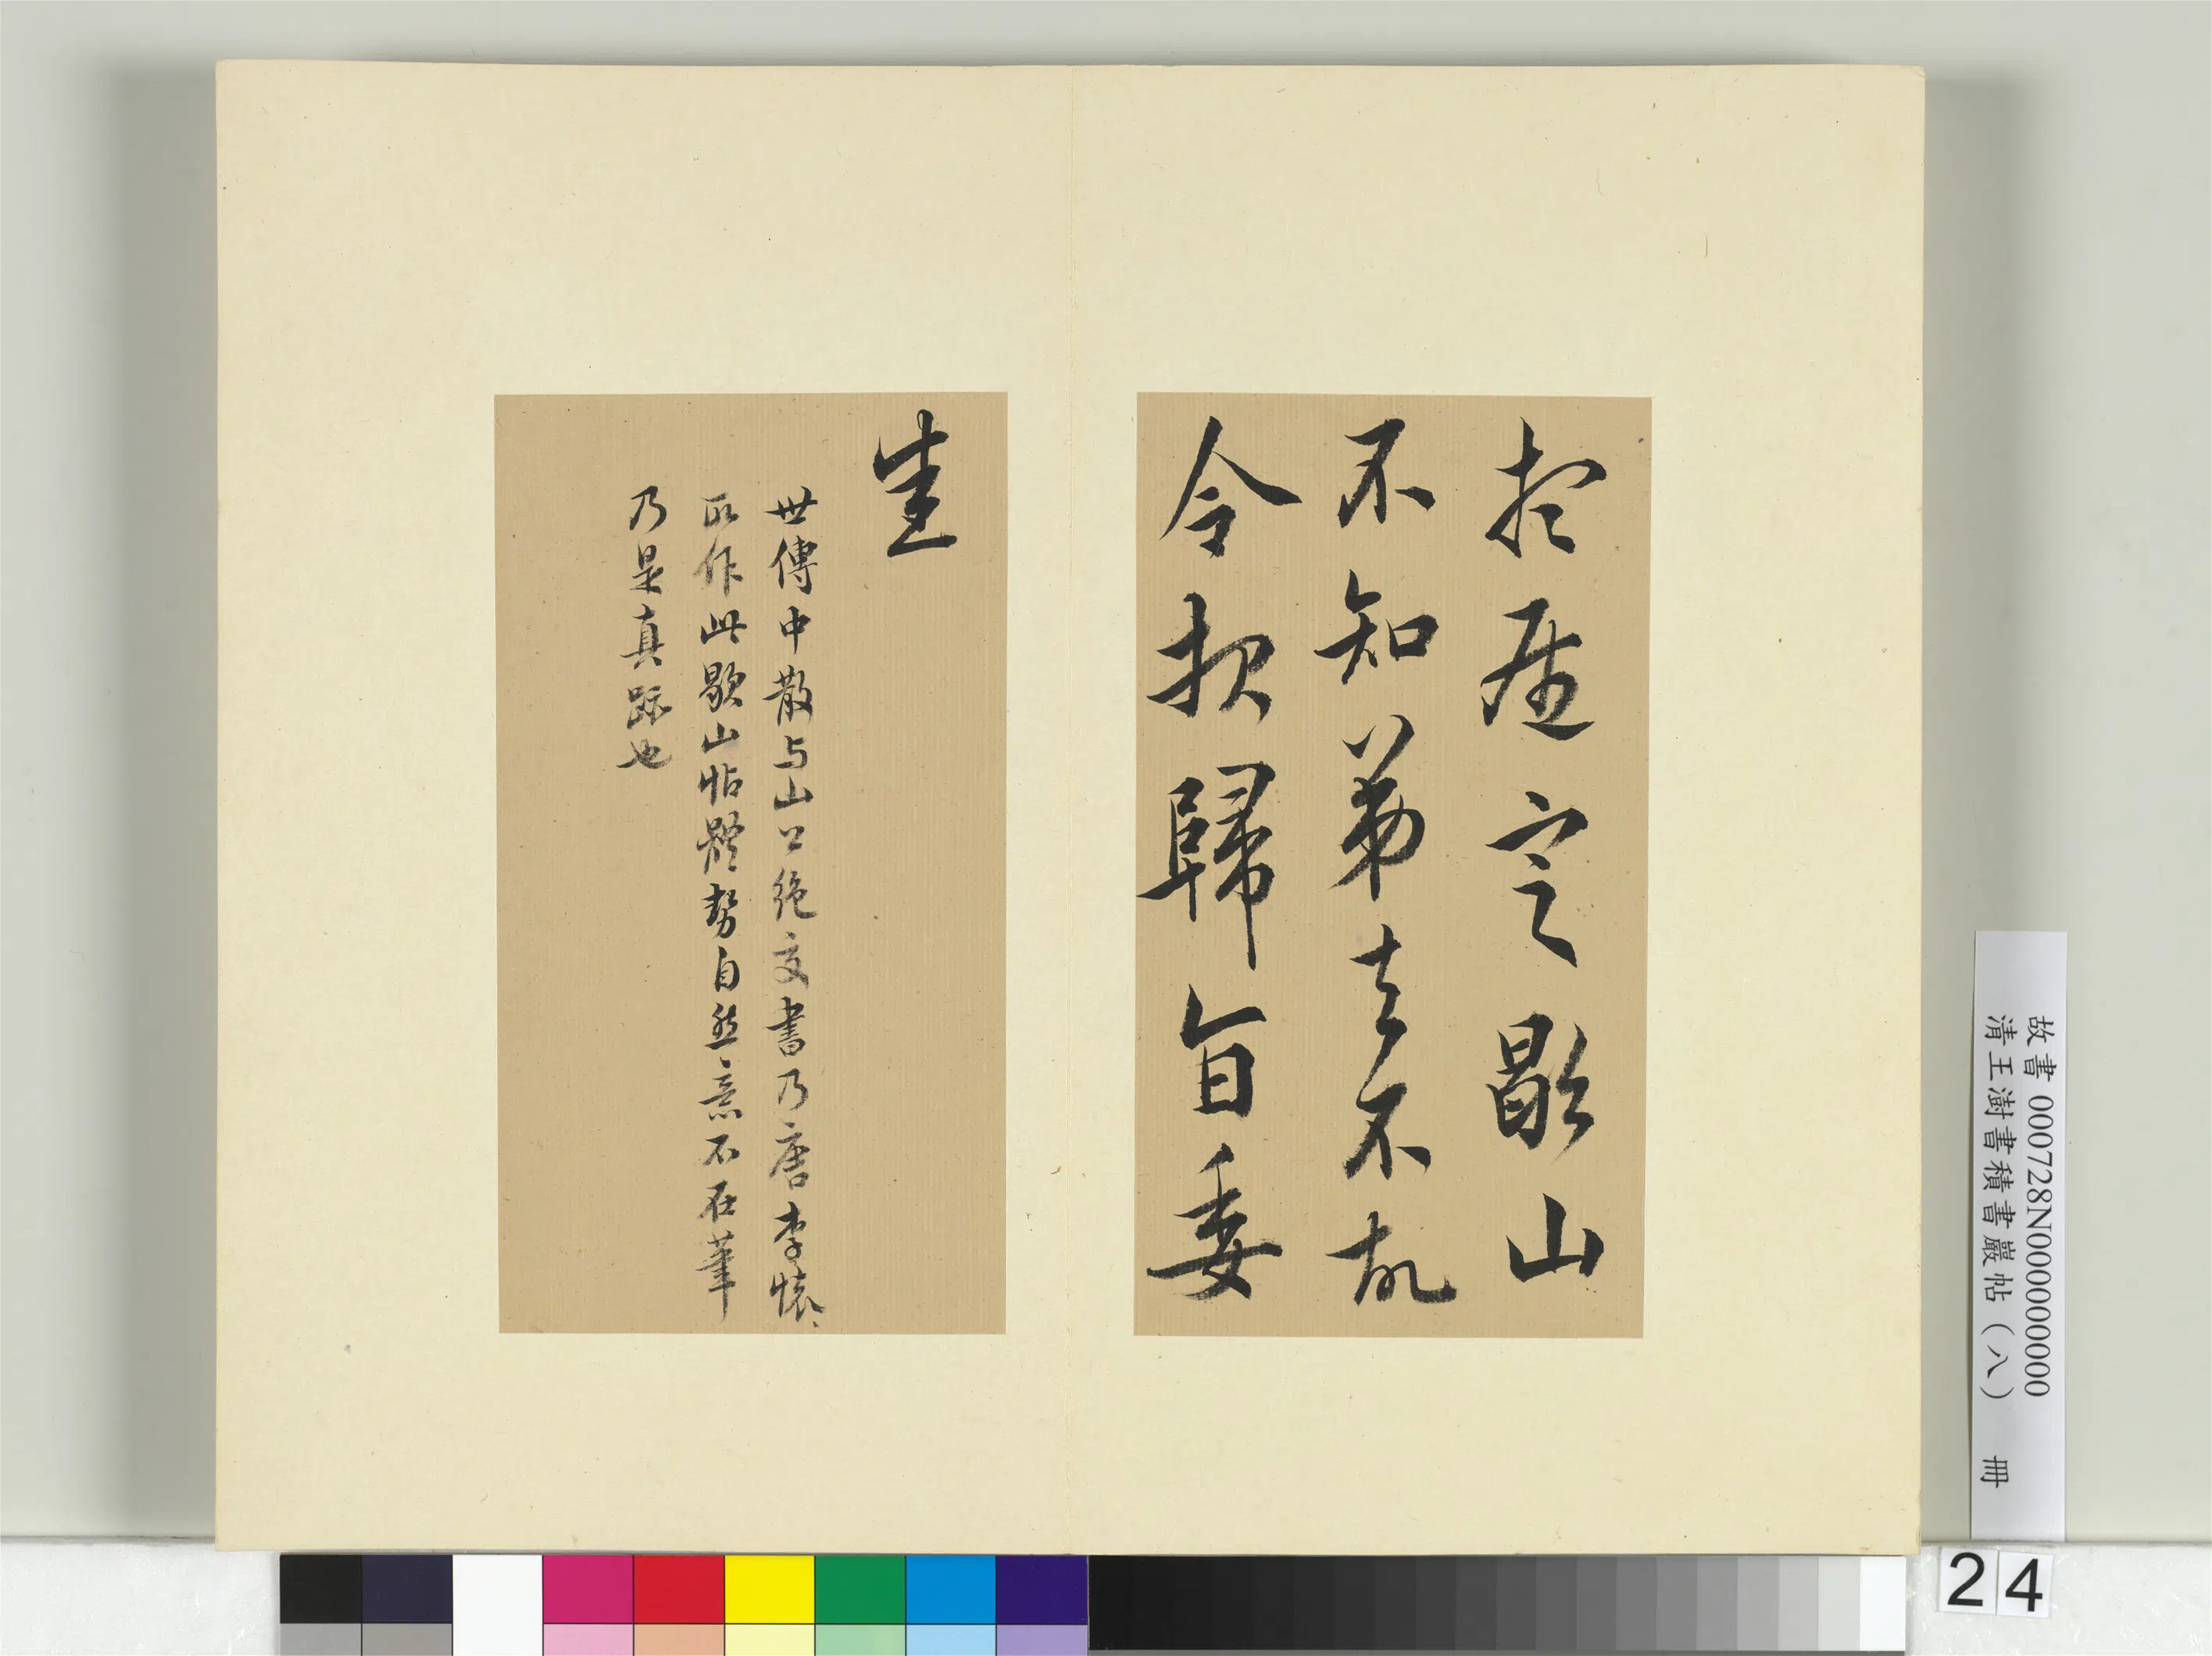 定歇山
不知弟去不故
令歸旨委
世傳中散与山公絶交書乃唐李懷
所作此歇山帖體勢自然意不在筆
乃是真跡也
故書 000728N000000000
清王澍書積書巖帖（八） 冊
24